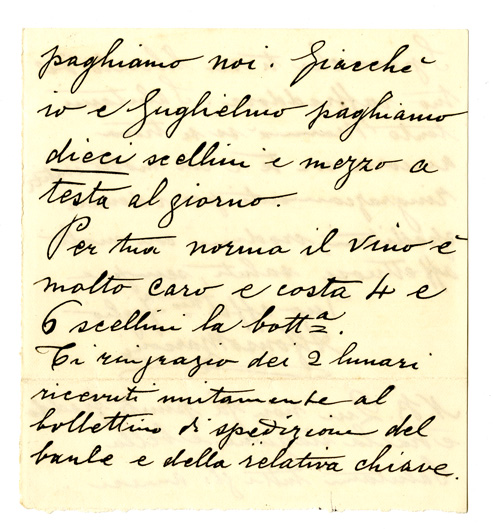 paghiamo noi. Giacchè
io e Guglielmo paghiamo
dieci scellini e mezzo a
testa al giorno.
Per tua norma il vino è
molto caro e costa 4 e
6 scellini la bottª.
Ti ringrazio dei 2 lunari
ricevuti unitamente al
bollettino di spedizione del
baule e della relativa chiave.